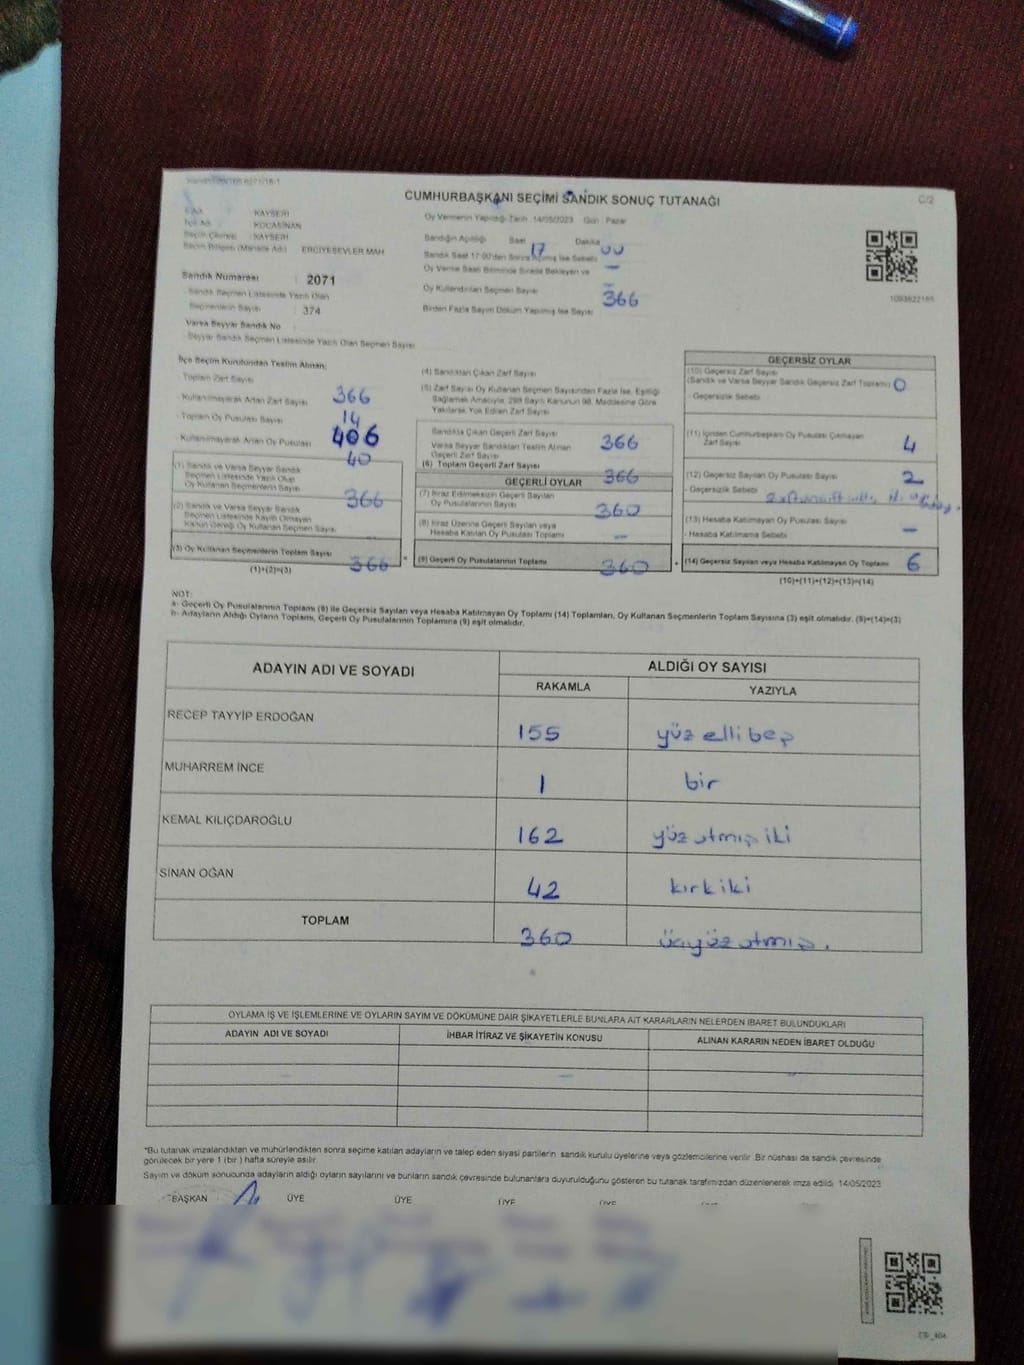 CUMHURBAŞKANI SEÇİMİ SANDIK SONUÇ TUTANAĞI
C/2
KAYSERİ
KOCASİNAN
KAYSERİ
ERCİYESEVLER MAH
Oy Vermenin Yapıldığı Tarih 14/05/2023 Gün Pazar
Sandığın Açıldığı Saat 17 Dakika 00
Sandık Saat 17:00'den Sonra Açılmış İse Sebebi
Oy Verme Saati Bitiminde Sırada Bekleyen ve –
Oy Kullandırılan Seçmen Sayısı
Birden Fazla Sayım Döküm Yapılmış İse Sayısı
366
Sandık Numarası 2071
Sandık Seçmen Listesinde Yazılı Olan
Seçmenlerin Sayısı : 374
Varsa Seyyar Sandık No
Seyyar Sandık Seçmen Listesinde Yazılı Olan Seçmen Sayısı
İlçe Seçim Kurulundan Teslim Alınan;
Toplam Zarf Sayısı
366
- Kullanılmayarak Artan Zarf Sayısı
14
- Toplam Oy Pusulası Sayısı
406
- Kullanılmayarak Artan Oy Pusulası
40
(1) Sandık ve Varsa Seyyar Sandık
Seçmen Listesinde Yazılı Olup
Oy Kullanan Seçmenlerin Sayısı
366
(2) Sandık ve Varsa Seyyar Sandık
Seçmen Listesinde Kayıtlı Olmayan
Kanun Gereği Oy Kullanan Seçmen Sayısı
(3) Oy Kullanan Seçmenlerin Toplam Sayısı 366
(1)+(2)=(3)
(4) Sandıktan Çıkan Zarf Sayısı
(5) Zarf Sayısı Oy Kullanan Seçmen Sayısından Fazla İse, Eşitliği
Sağlamak Amacıyla, 298 Sayılı Kanunun 98. Maddesine Göre
Yakılarak Yok Edilen Zarf Sayısı
Sandıkta Çıkan Geçerli Zarf Sayısı
Varsa Seyyar Sandıktan Teslim Alınan
Geçerli Zarf Sayısı
366
(6) Toplam Geçerli Zarf Sayısı
366
GEÇERLİ OYLAR
(7) İtiraz Edilmeksizin Geçerli Sayılan
Oy Pusulası Sayısı
360
(8) İtiraz Üzerine Geçerli Sayılan veya
Hesaba Katılan Oy Pusulası Toplamı –
(9) Geçerli Oy Pusulalarının Toplamı 360
GEÇERSİZ OYLAR
(10) Geçersiz Zarf Sayısı
(Sandık ve Varsa Seyyar Sandık Geçersiz Zarf Toplamı) 0
- Geçersizlik Sebebi
(11) İçinden Cumhurbaşkanı Oy Pusulası Çıkmayan
Zarf Sayısı 4
(12) Geçersiz Sayılan Oy Pusulası Sayısı 2
- Geçersizlik Sebebi
(13) Hesaba Katılmayan Oy Pusulası Sayısı
- Hesaba Katılmama Sebebi –
(14) Geçersiz Sayılan veya Hesaba Katılmayan Oy Toplamı 6
(10)+(11)+(12)+(13)=(14)
NOT:
a- Geçerli Oy Pusulalarının Toplamı (9) ile Geçersiz Sayılan veya Hesaba Katılmayan Oy Toplamı (14) Toplamları, Oy Kullanan Seçmenlerin Toplam Sayısına (3) eşit olmalıdır. (9)+(14)=(3)
b- Adayların Aldığı Oyların Toplamı, Geçerli Oy Pusulalarının Toplamına (9) eşit olmalıdır.
ADAYIN ADI VE SOYADI
ALDIĞI OY SAYISI
RAKAMLA YAZIYLA
RECEP TAYYİP ERDOĞAN 155 yüz elli beş
MUHARREM İNCE 1 bir
KEMAL KILIÇDAROĞLU 162 yüz atmış iki
SİNAN OĞAN 42 kırk iki
TOPLAM 360 üçyüz atmış.
OYLAMA İŞ VE İŞLEMLERİNE VE OYLARIN SAYIM VE DÖKÜMÜNE DAİR ŞİKAYETLERLE BUNLARA AİT KARARLARIN NELERDEN İBARET BULUNDUKLARI
ADAYIN ADI VE SOYADI İHBAR İTİRAZ VE ŞİKAYETİN KONUSU ALINAN KARARIN NEDEN İBARET OLDUĞU
*Bu tutanak imzalandıktan ve mühürlendikten sonra seçime katılan adayların ve talep eden siyasi partilerin sandık kurulu üyelerine veya gözlemcilerine verilir. Bir nüshası da sandık çevresinde
görülecek bir yere 1 (bir) hafta süreyle asılır.
Sayım ve döküm sonucunda adayların aldığı oyların sayılarını ve bunların sandık çevresinde bulunanlara duyurulduğunu gösteren bu tutanak tarafımızdan düzenlenerek imza edildi. 14/05/2023
BAŞKAN ÜYE ÜYE ÜYE ÜYE